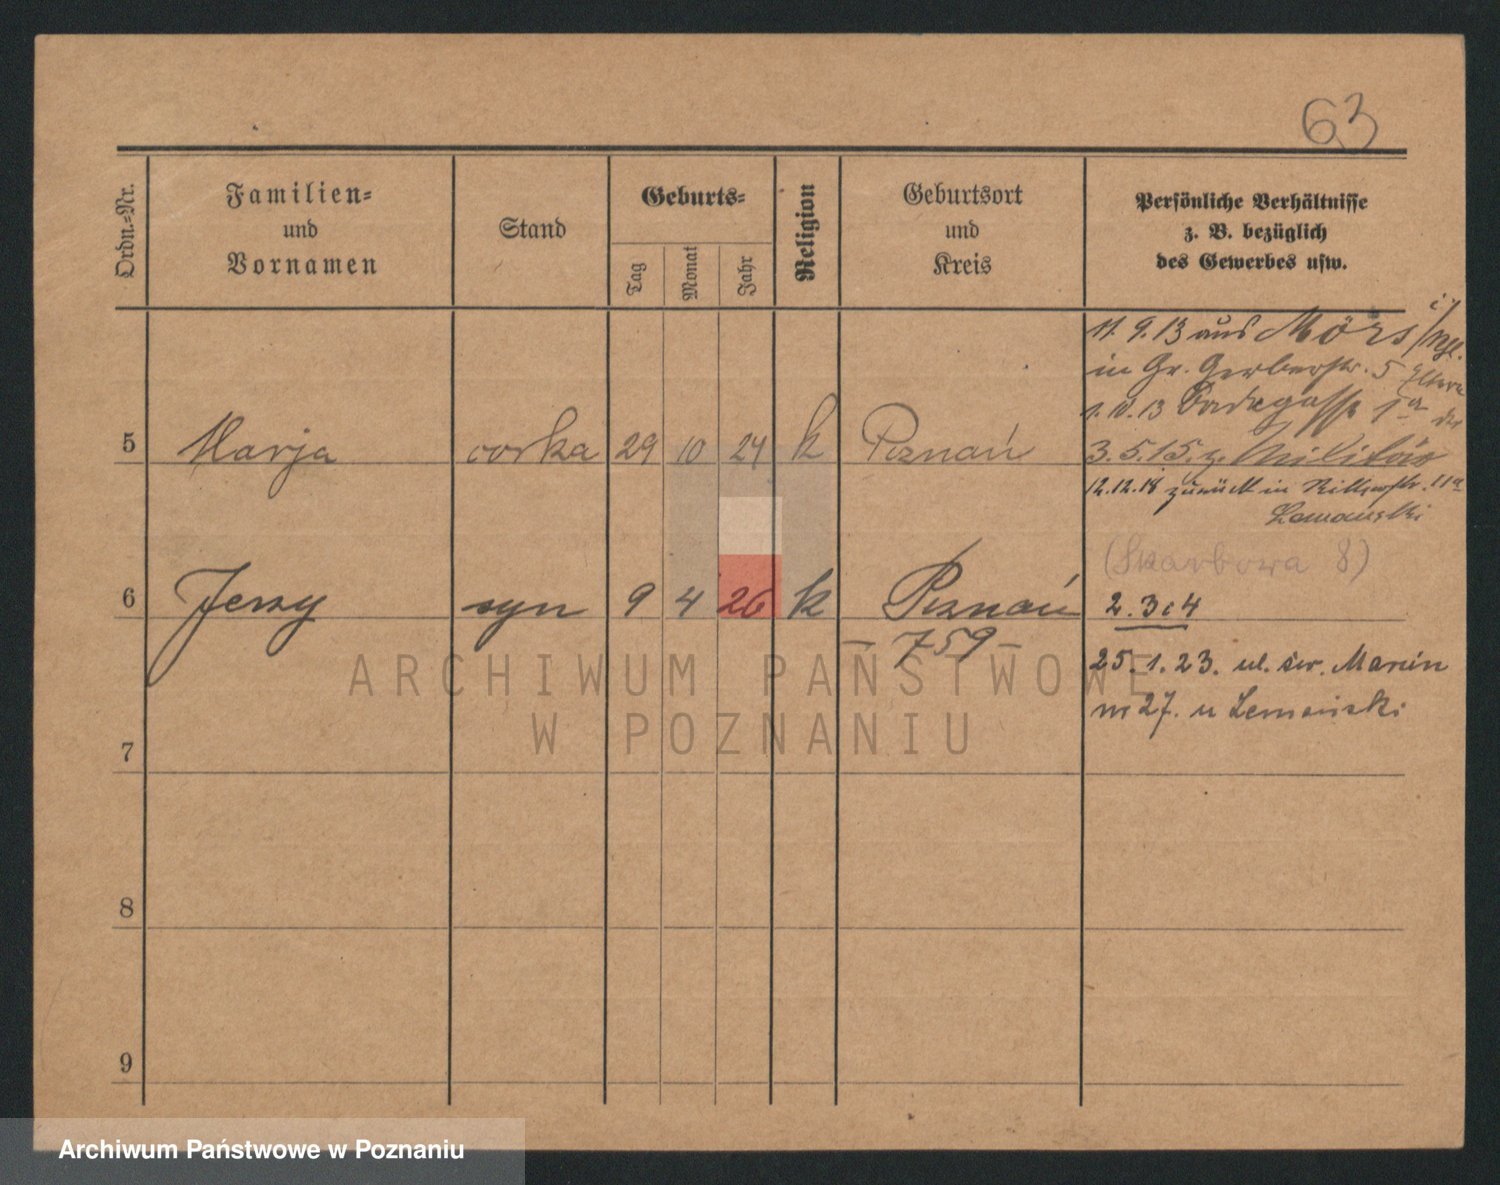 63
Ordn.=Nr.
Familien=
und
Vornamen
Stand
Geburts=
Tag
Monat
Jahr
Religion
Geburtsort
und
Kreis
Persönliche Verhältnisse
z. B. bezüglich
des Gewerbes usw.
11. 9. 13 aus Mörs
in Gr. Gerberstr. 5 Eltern
1. 10. 13 Badegasse 1a
5 Marja corka 29 10 24 k Poznań
3. 5. 15. z. Militär
12.12.18 zurück in Ritterstr. 11a
Lemański
(Skarbowa 8)
6 Jerzy syn 9 4 26 k Poznań
2. 3 i 4
- 759 -
25. 1. 23. ul. św. Marcin
nr 27. u Lemański
ARCHIWUM PAŃSTWOWE
W POZNANIU
7
8
9
Archiwum Państwowe w Poznaniu